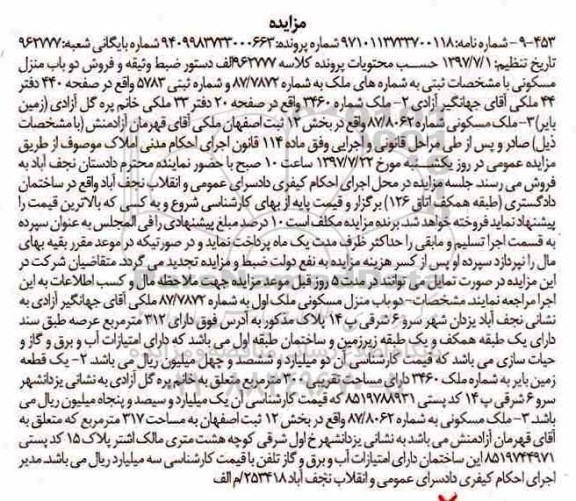 مزایده
۹-۴۵۳- شماره نامه: ۹۷۱۰۱۱۳۷۳۳۷۰۰۱۱۸ شماره پرونده: ۹۴۰۹۹۸۳۷۳۳۰۰۰۶۶۳ شماره بایگانی شعبه: ۹۶۲۷۷۷
تاریخ تنظیم: ۱۳۹۷/۷/۱ حسب محتویات پرونده کلاسه ۹۶۲۷۷۷الف دستور ضبط وثیقه و فروش دو باب منزل
مسکونی با مشخصات ثبتی به شماره های ملک به شماره ۸۷/۷۸۷۲ و شماره ثبتی ۵۷۸۳ واقع در صفحه ۴۴۰ دفتر
۴۴ ملکی آقای جهانگیر آزادی ۲- ملک شماره ۳۴۶۰ واقع در صفحه ۲۰ دفتر ۳۳ ملکی خانم پره گل آزادی (زمین
بایر) ۳- ملک مسکونی شماره ۸۷/۸۰۶۲ واقع در بخش ۱۲ ثبت اصفهان ملکی آقای قهرمان آزادمنش (با مشخصات
ذیل) صادر و پس از طی مراحل قانونی و اجرایی وفق ماده ۱۱۴ قانون اجرای احکام مدنی املاک موصوف از طریق
مزایده عمومی در روز یکشنبه مورخ ۱۳۹۷/۷/۲۲ ساعت ۱۰ صبح با حضور نماینده محترم دادستان نجف آباد به
فروش می رسند جلسه مزایده در محل اجرای احکام کیفری دادسرای عمومی و انقلاب نجف آباد واقع در ساختمان
دادگستری (طبقه همکف اتاق ۱۲۶) برگزار و قیمت پایه از بهای کارشناسی شروع و به کسی که بالاترین قیمت را
پیشنهاد نماید فروخته خواهد شد. برنده مزایده مکلف است ۱۰ درصد مبلغ پیشنهادی را فی المجلس به عنوان سپرده
به قسمت اجرا تسلیم و مابقی را حداکثر ظرف مدت یک ماه پرداخت نماید و در صورتیکه در موعد مقرر بقیه بهای
مال را نپردازد سپرده او پس از کسر هزینه مزایده به نفع دولت ضبط و مزایده تجدید می گردد. متقاضیان شرکت در
این مزایده در صورت تمایل می توانند در مدت ۵ روز قبل موعد مزایده جهت ملاحظه مال و کسب اطلاعات به این
اجرا مراجعه نمایند. مشخصات- دو باب منزل مسکونی ملک اول به شماره ۸۷/۷۸۷۲ ملکی آقای جهانگیر آزادی به
نشانی نجف آباد یزدان شهر سرو ۶ شرقی پ ۱۴ پلاک مذکور به آدرس فوق دارای ۳۱۲ مترمربع عرصه طبق سند
دارای یک طبقه همکف و یک طبقه زیرزمین و ساختمان طبقه اول می باشد که دارای امتیازات آب و برق و گاز و
حیات سازی می باشد که قیمت کارشناسی آن دو میلیارد و سیصد و چهل میلیون ریال می باشد. ۲- یک قطعه
زمین بایر به شماره ملک ۳۴۶۰ دارای مساحت تقریبی ۳۰۰ مترمربع متعلق به خانم پره گل آزادی به نشانی یزدانشهر
سرو ۶ شرقی پ ۱۴ کد پستی ۸۵۱۹۷۸۸۹۳۱ که قیمت کارشناسی آن یک میلیارد و سیصد و پنجاه میلیون ریال می
باشد. ۳- ملک مسکونی به شماره ۸۷/۸۰۶۲ واقع در بخش ۱۲ ثبت اصفهان به مساحت ۳۱۷ مترمربع که متعلق به
آقای قهرمان آزادمنش می باشد به نشانی یزدانشهر خ اول شرقی کوچه هشت متری مالک اشتر پلاک ۱۵ کد پستی
۸۵۱۹۷۴۴۹۷۱ این ساختمان دارای امتیازات آب و برق و گاز تلفن با قیمت کارشناسی سه میلیارد ریال می باشد. مدیر
اجرای احکام کیفری دادسرای عمومی و انقلاب نجف آباد ۲۵۳۴۱۸/م الف